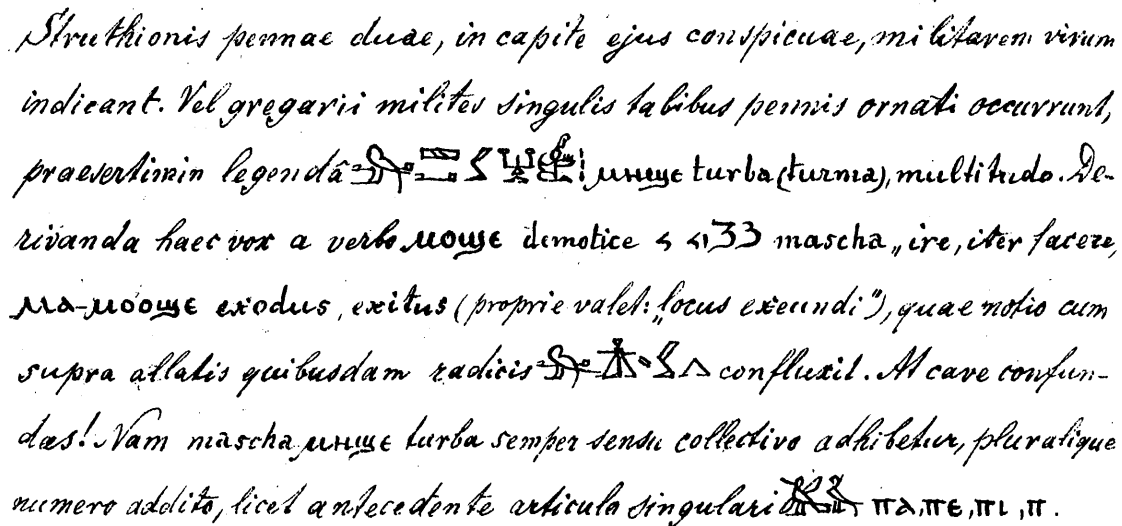 Struthionis pennae duae, in capite ejus conspicuae, militarem virum
indicant. Vel gregarii milites singulis talibus pennis ornati occurrunt,
praesertim in legendâ ⲙⲏϣⲉ turba (turma), multitudo. De-
rivanda haec vox a verbo ⲙⲟϣⲉ demotice mascha „ire, iter facere,
ⲙⲁ-ⲙⲟⲟϣⲉ exodus, exitus (proprie valet: „locus exeundi"), quae notio cum
supra allatis quibusdam radicis confluxit. At cave confun-
das! Nam mascha ⲙⲏϣⲉ turba semper sensu collectivo adhibetur, pluralique
numero addito, licet antecedente articulo singulari ⲡⲁ, ⲡⲉ, ⲡⲓ, ⲡ.